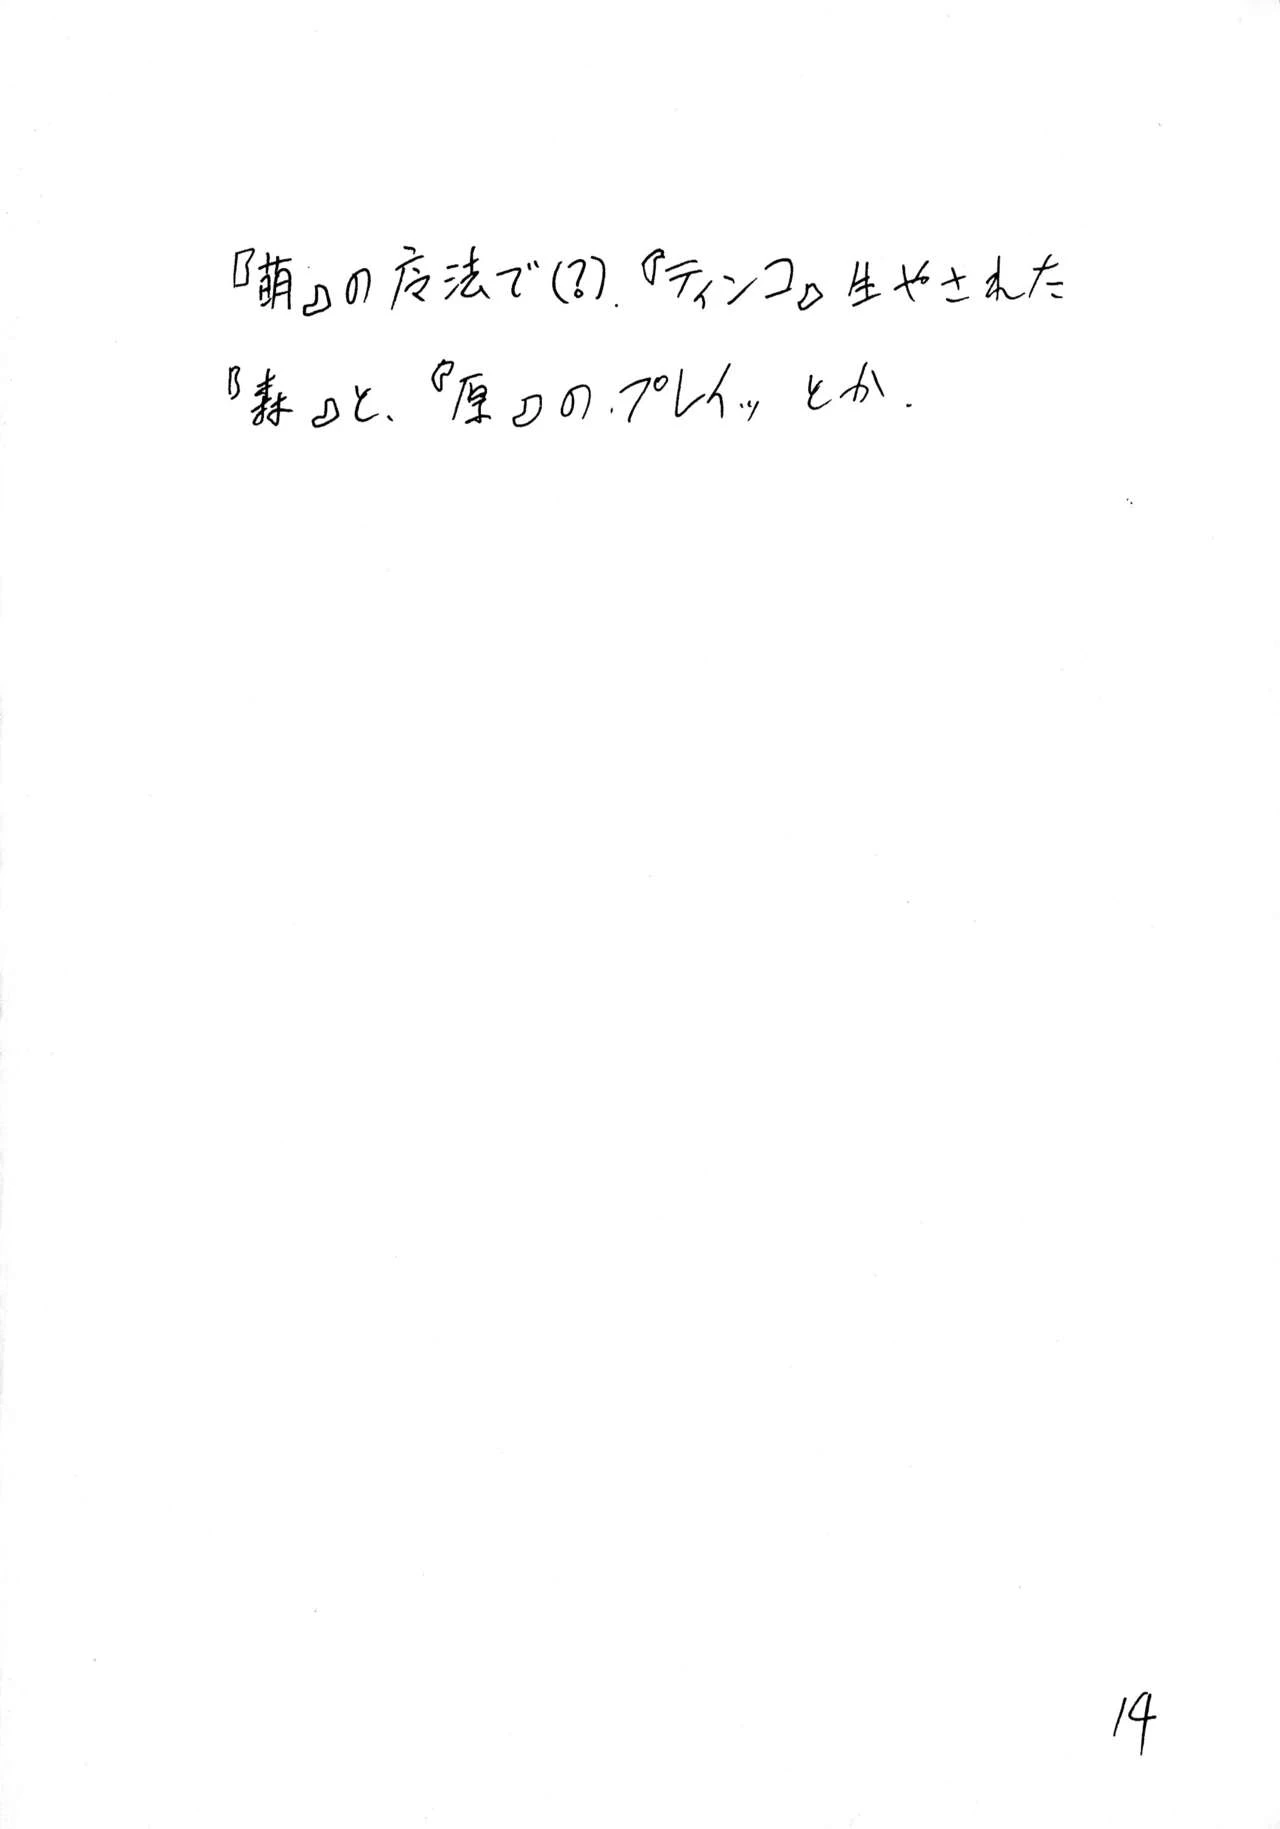 『萌』の魔法で(?).『ティンコ』生やされた
『森』と、『原』の.プレイッとか.
14